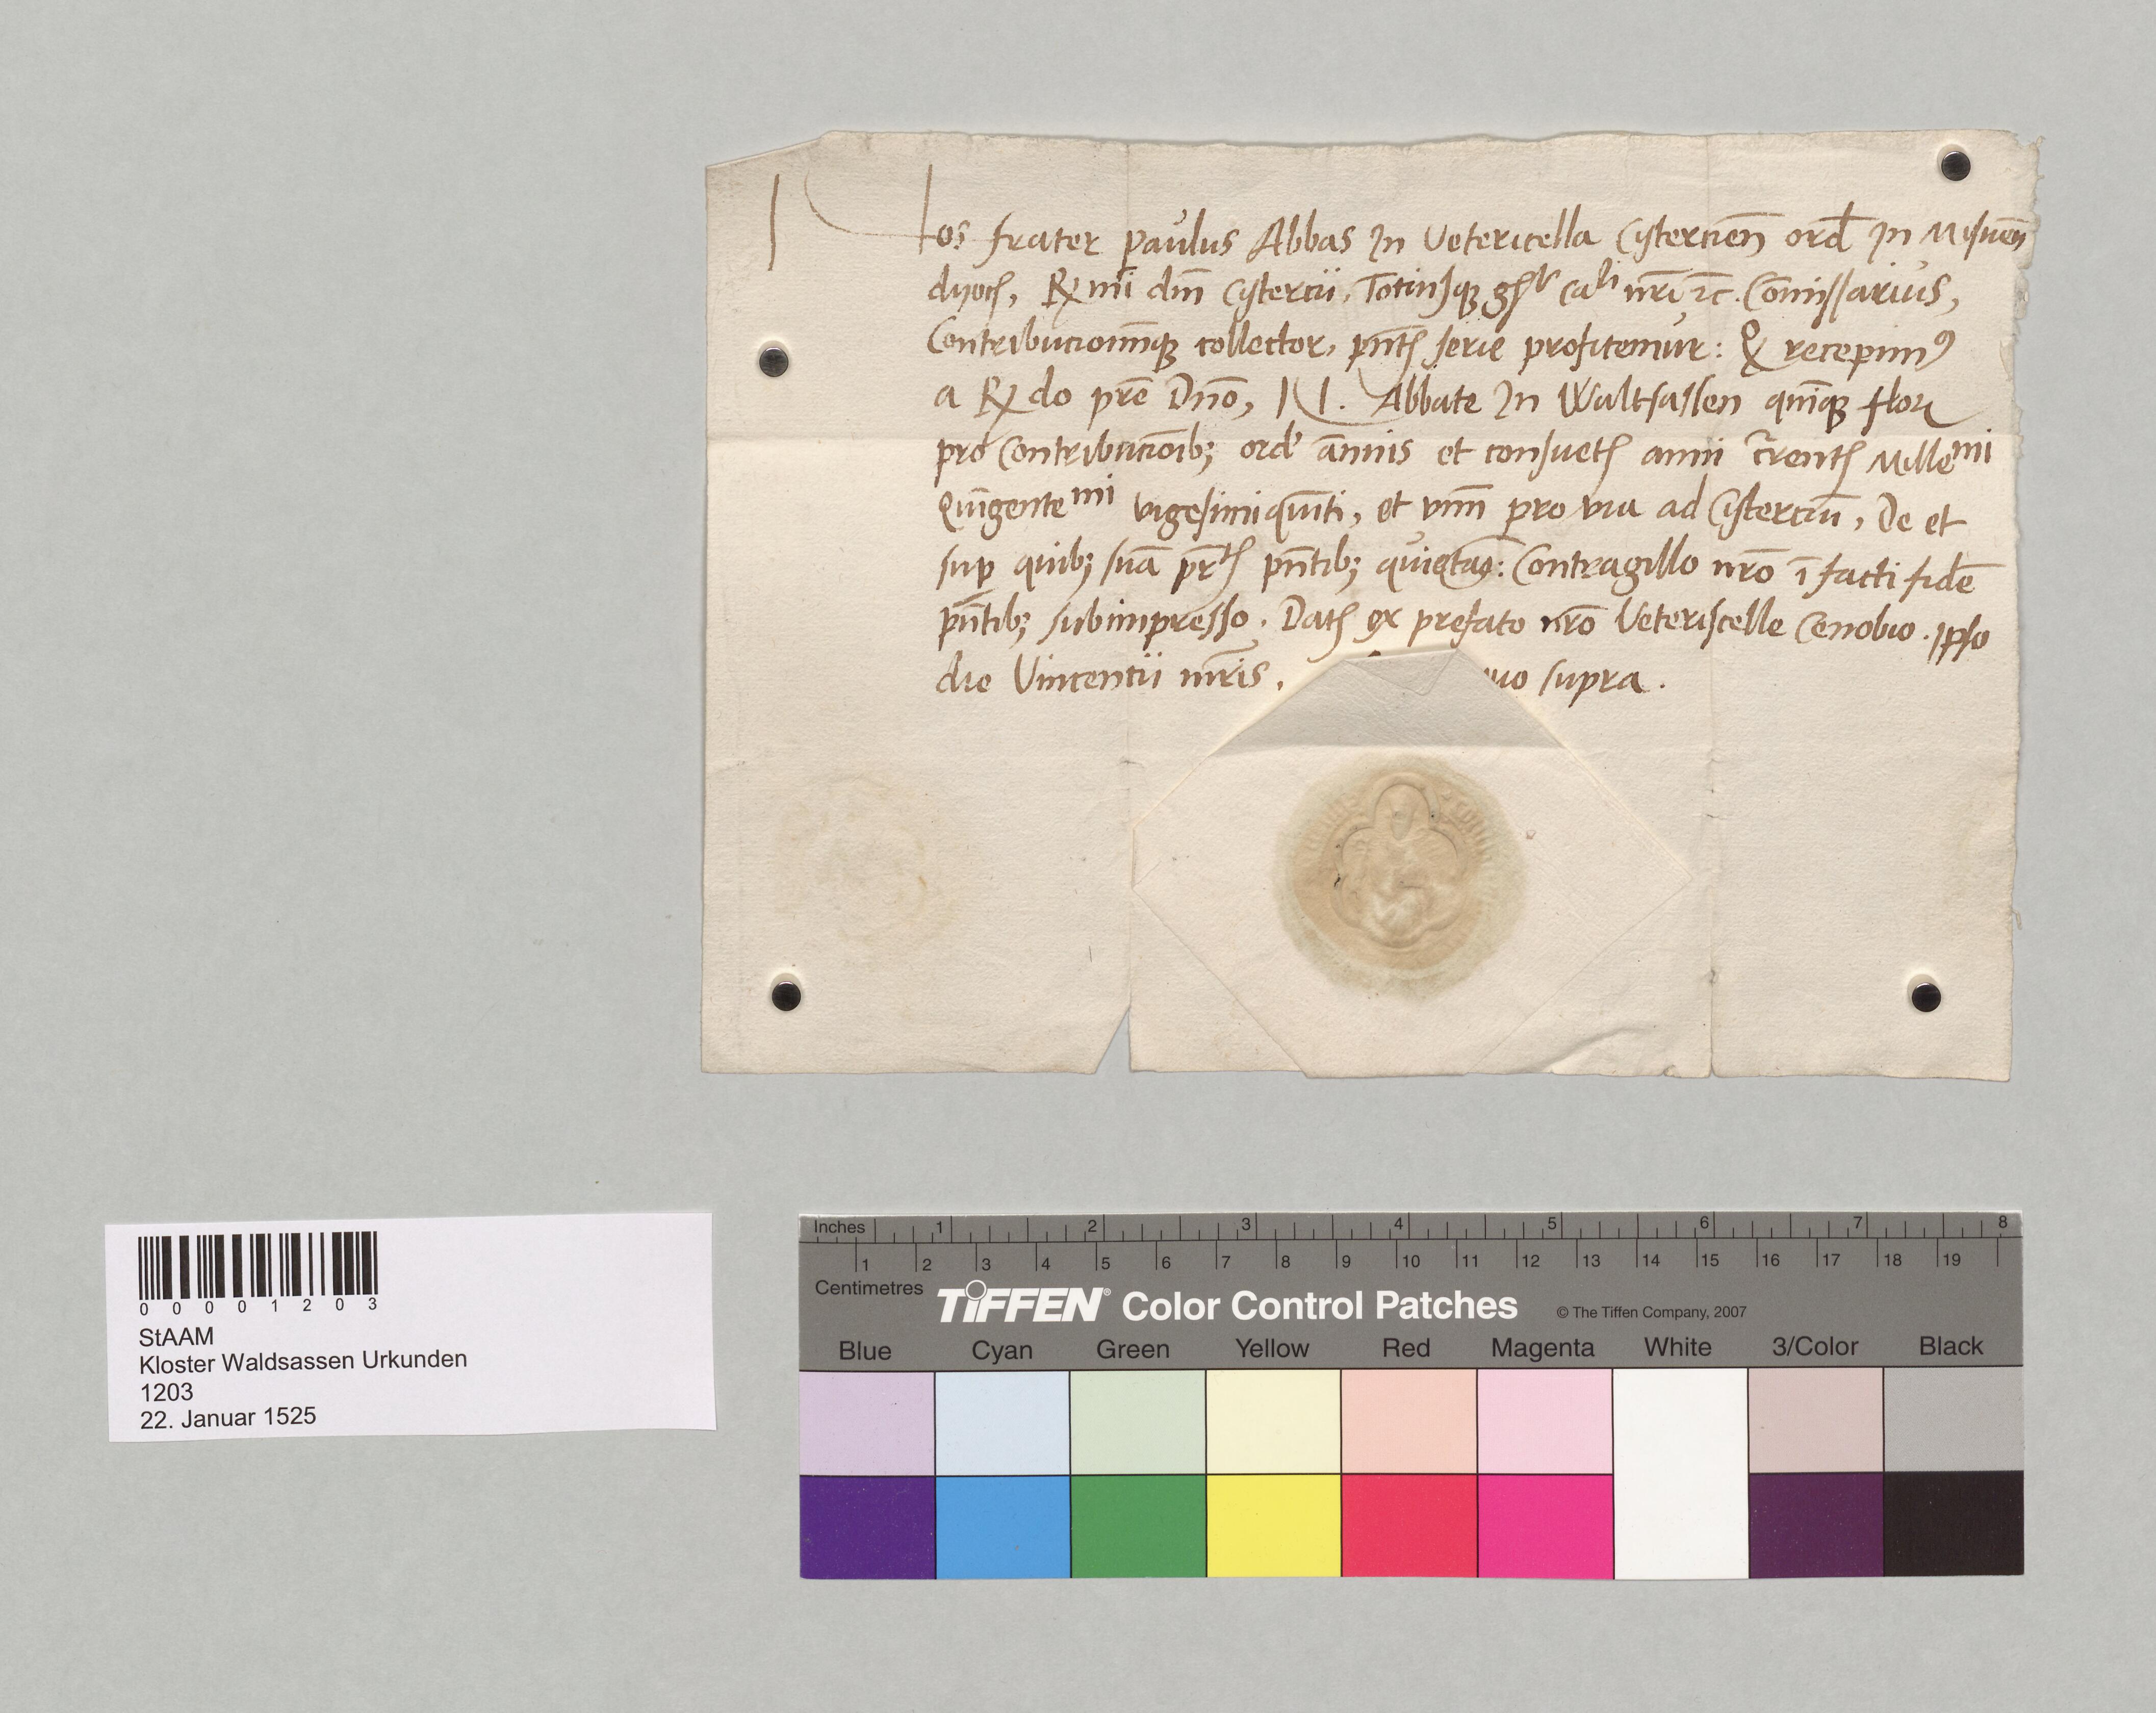 Nos frater paulus Abbas In Vetericella Cystercien̄ ord In Misnen̄
dyoc, R mi dn̄i Cystercii, Totiusque gn̄l cali nr̄i rc. Com̄issarius,
Contribucionūque collector, pn̄t serie profitemur: Q recepimꝰ
a R do pr̄e Dn̄o, N. Abbate In Waltsassen quīque flor
pro Contribucōib; ord an̄uis et consuet anni cr̄rent Mille mi
Quīgente mi vigesimi quīti, et vnū pro via ad Cysterciū, De et
sup quib; suā pr̄t pn̄tib; quietaꝰ: Contrasigillo nr̄o ī facti fidē
pn̄tib; subimpresso. Dat ex prefato nr̄o Veteriscelle Cenobio. Ipso
die Vincentii mr̄is, quo supra.
0 0 0 0 1 2 0 3
StAAM
Kloster Waldsassen Urkunden
1203
22. Januar 1525
Inches 1 2 3 4 5 6 7 8
1 2 3 4 5 6 7 8 9 10 11 12 13 14 15 16 17 18 19
Centimetres
TIFFEN® Color Control Patches © The Tiffen Company, 2007
Blue Cyan Green Yellow Red Magenta White 3/Color Black